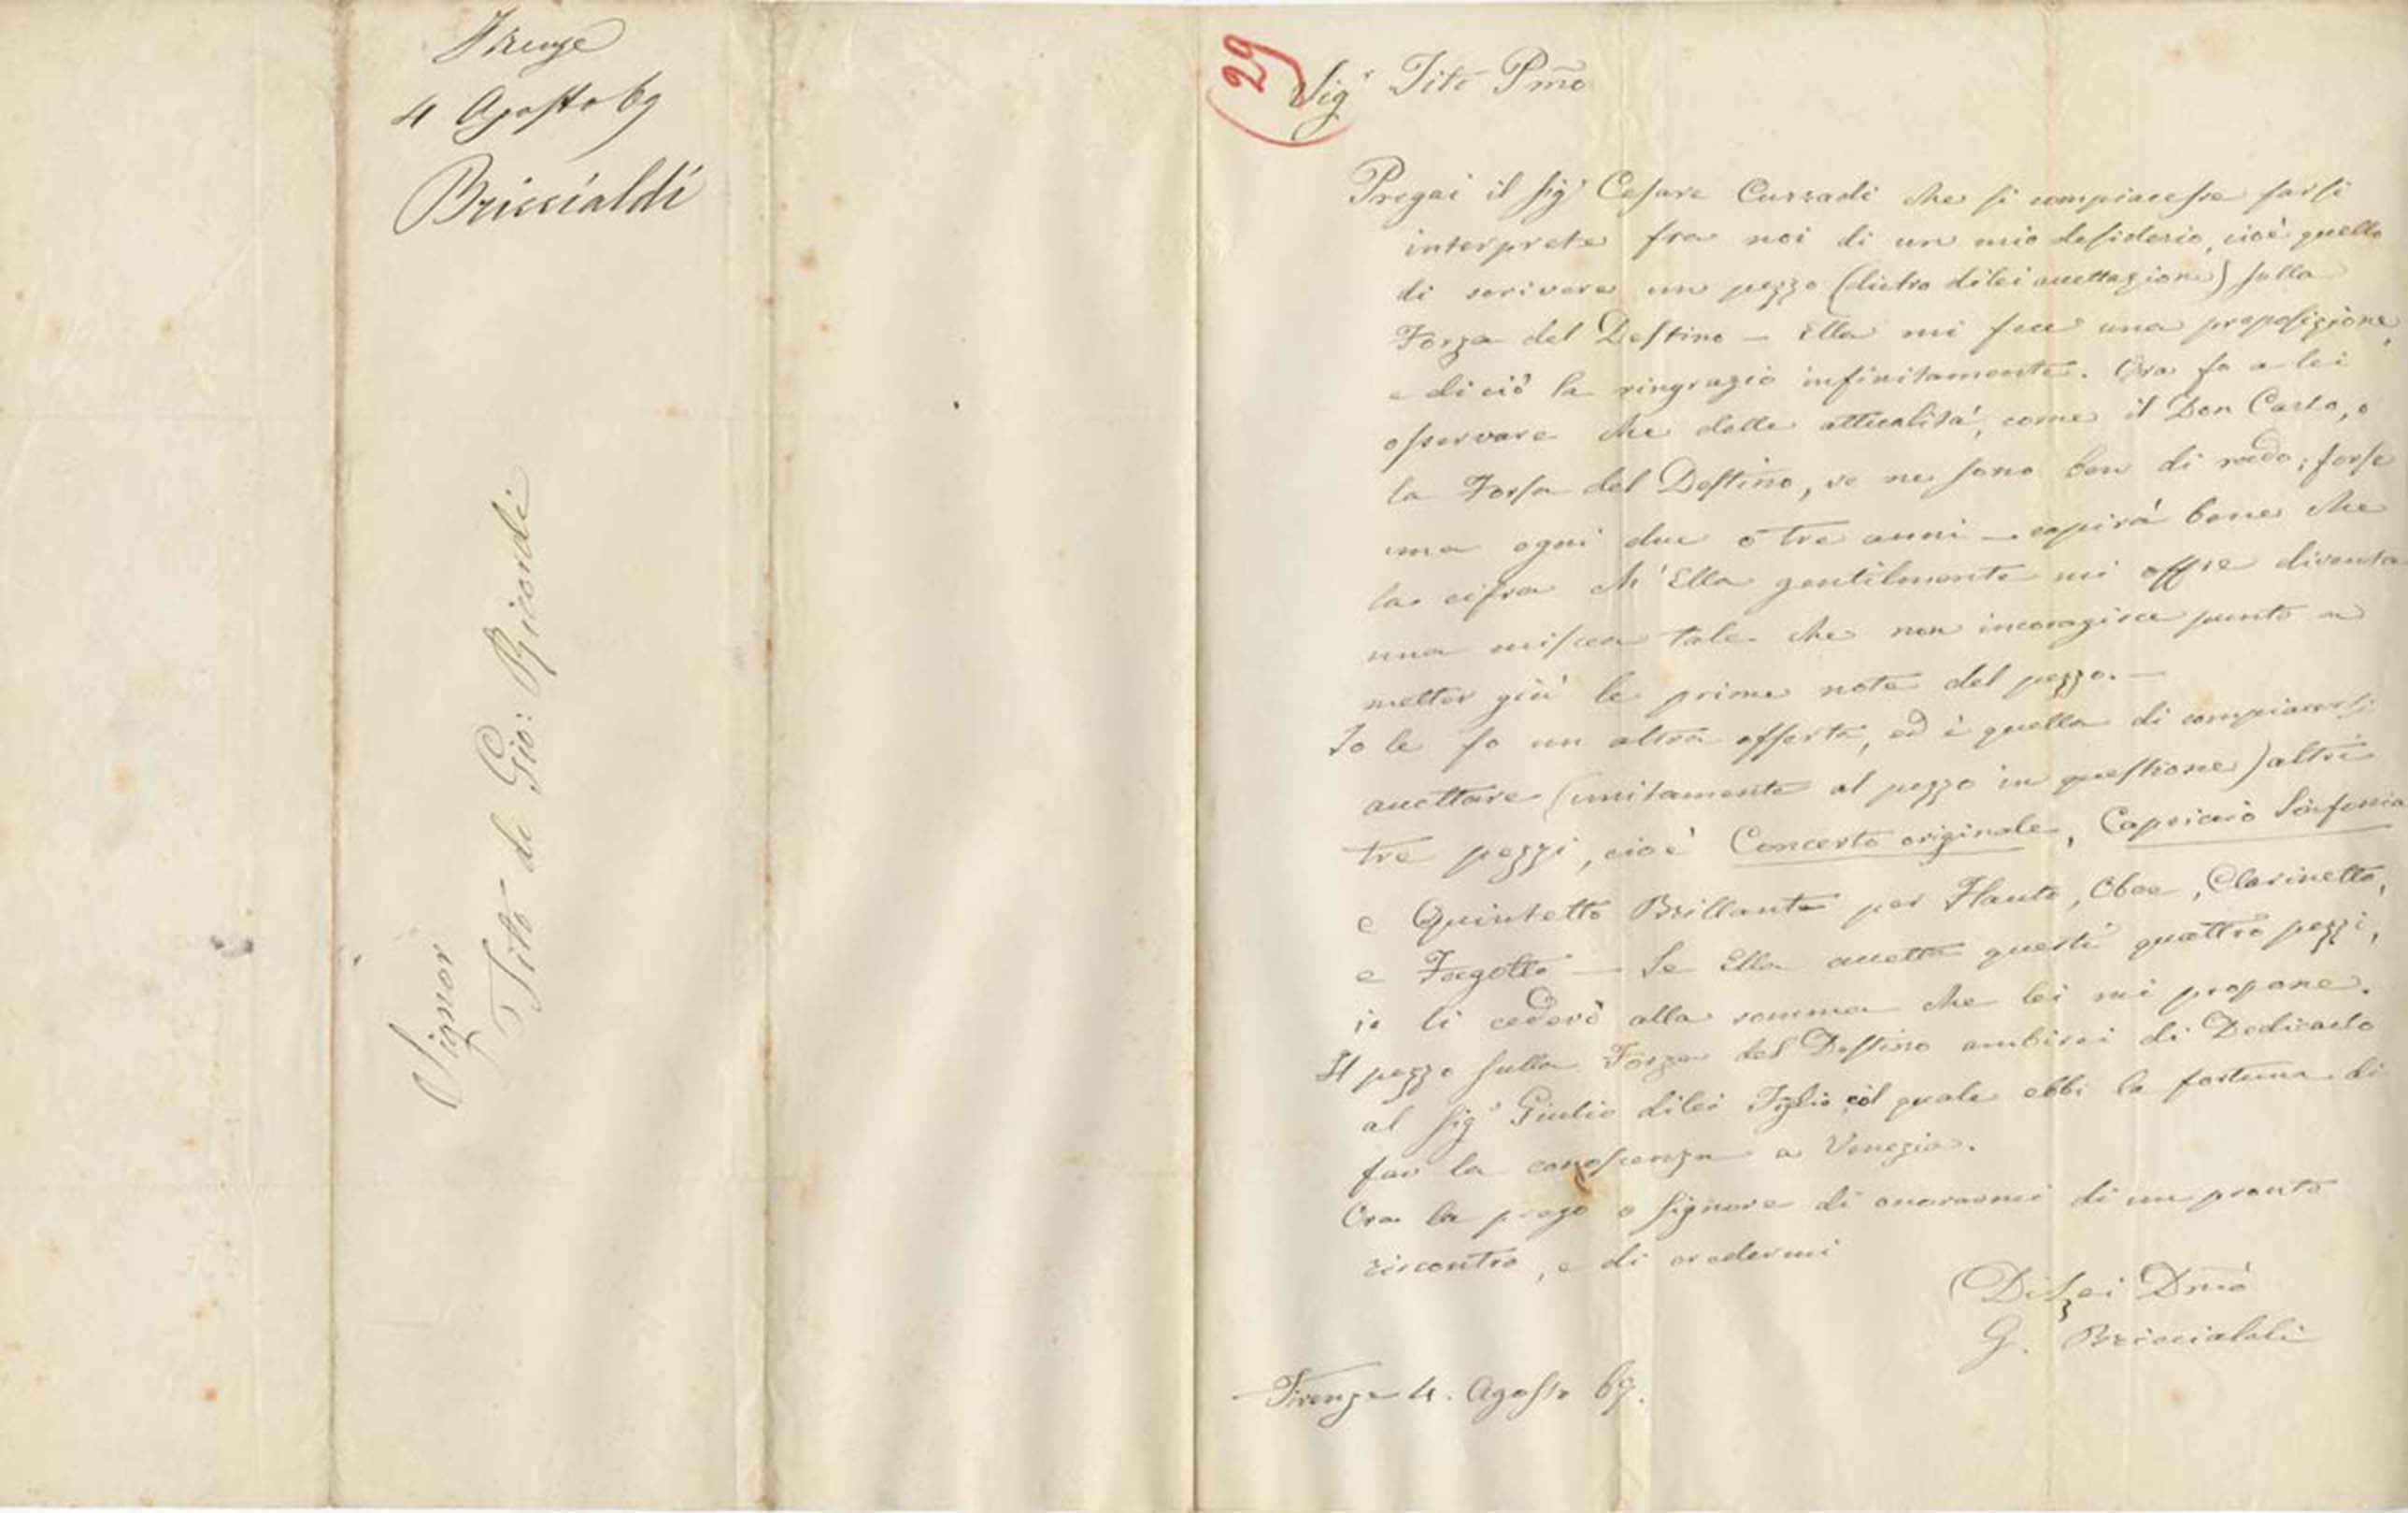 Firenze
4 Agosto 69
Briccialdi
Signor
Tito di Gio: Ricordi
29
Sigr Tito Pmo
Pregai il Sigr Cesare che si compiacesse farsi
interprete fra noi di un mio desiderio, cioè quello
di scrivere un pezzo (dietro di lei accettazione) sulla
Forza del Destino — Ella mi fece una proposizione,
e di ciò la ringrazio infinitamente. Ora fo a lei
osservare che delle attualità, come il Don Carlo, o
la Forsa del Destino, ve ne sono ben di rado; forse
una ogni due o tre anni — capirà bene che
la cifra ch'Ella gentilmente mi offre diventa
una tale che non incoragisce punto a
metter giù le prime note del pezzo. —
Io le fo un altra offerta, ed è quella di compiacersi
accettare (unitamente al pezzo in questione) altri
tre pezzi, cioè Concerto originale, Capriccio Sinfonia
e Quintetto Brillante per Flauto, Oboe, Clarinetto,
e Fagotto — Se Ella accetta questi quattro pezzi,
io li cederò alla somma che lei mi propone.
Il pezzo sulla Forza del Destino ambirei di Dedicarlo
al Sigr Giulio di lei Figlio col quale ebbi la fortuna di
far la conoscenza a Venezia.
Ora la prego o Signore di onorarmi di un pronto
riscontro, e di credermi
Di Lei Dmo
G. Briccialdi
Firenze 4. Agosto 69.